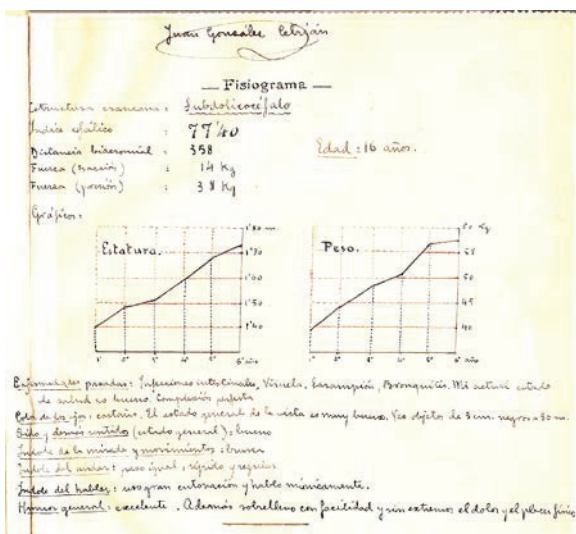 Juan González Cebrián
— Fisiograma —
Estructura craneana : Subdolicocéfalo
Índice cefálico : 77'40
Distancia biacromial : 358
Edad : 16 años.
Fuerza (tracción) : 14 Kg
Fuerza (presión) : 38 Kg
Gráficos :
Estatura.
1'80 m.
1'70
1'60
1'50
1'40
1º 2º 3º 4º 5º 6º año
Peso.
60 Kg
55
50
45
40
1º 2º 3º 4º 5º 6º año
Enfermedades pasadas: Infecciones intestinales, Viruela, Sarampión, Bronquitis. Mi actual estado
de salud es bueno. Complexión perfecta
Color de los ojos: castaño. El estado general de la vista es muy bueno. Veo objetos de 3 cm. negros a 30 m.
Oído y demás sentidos (estado general): bueno
Índole de la mirada y movimientos: buena
Índole del andar: paso igual, rápido y seguido
Índole del hablar: uso gran entonación y hablo mímicamente.
Humor general: excelente. Además sobrellevo con facilidad y sin extremos el dolor y el placer físico